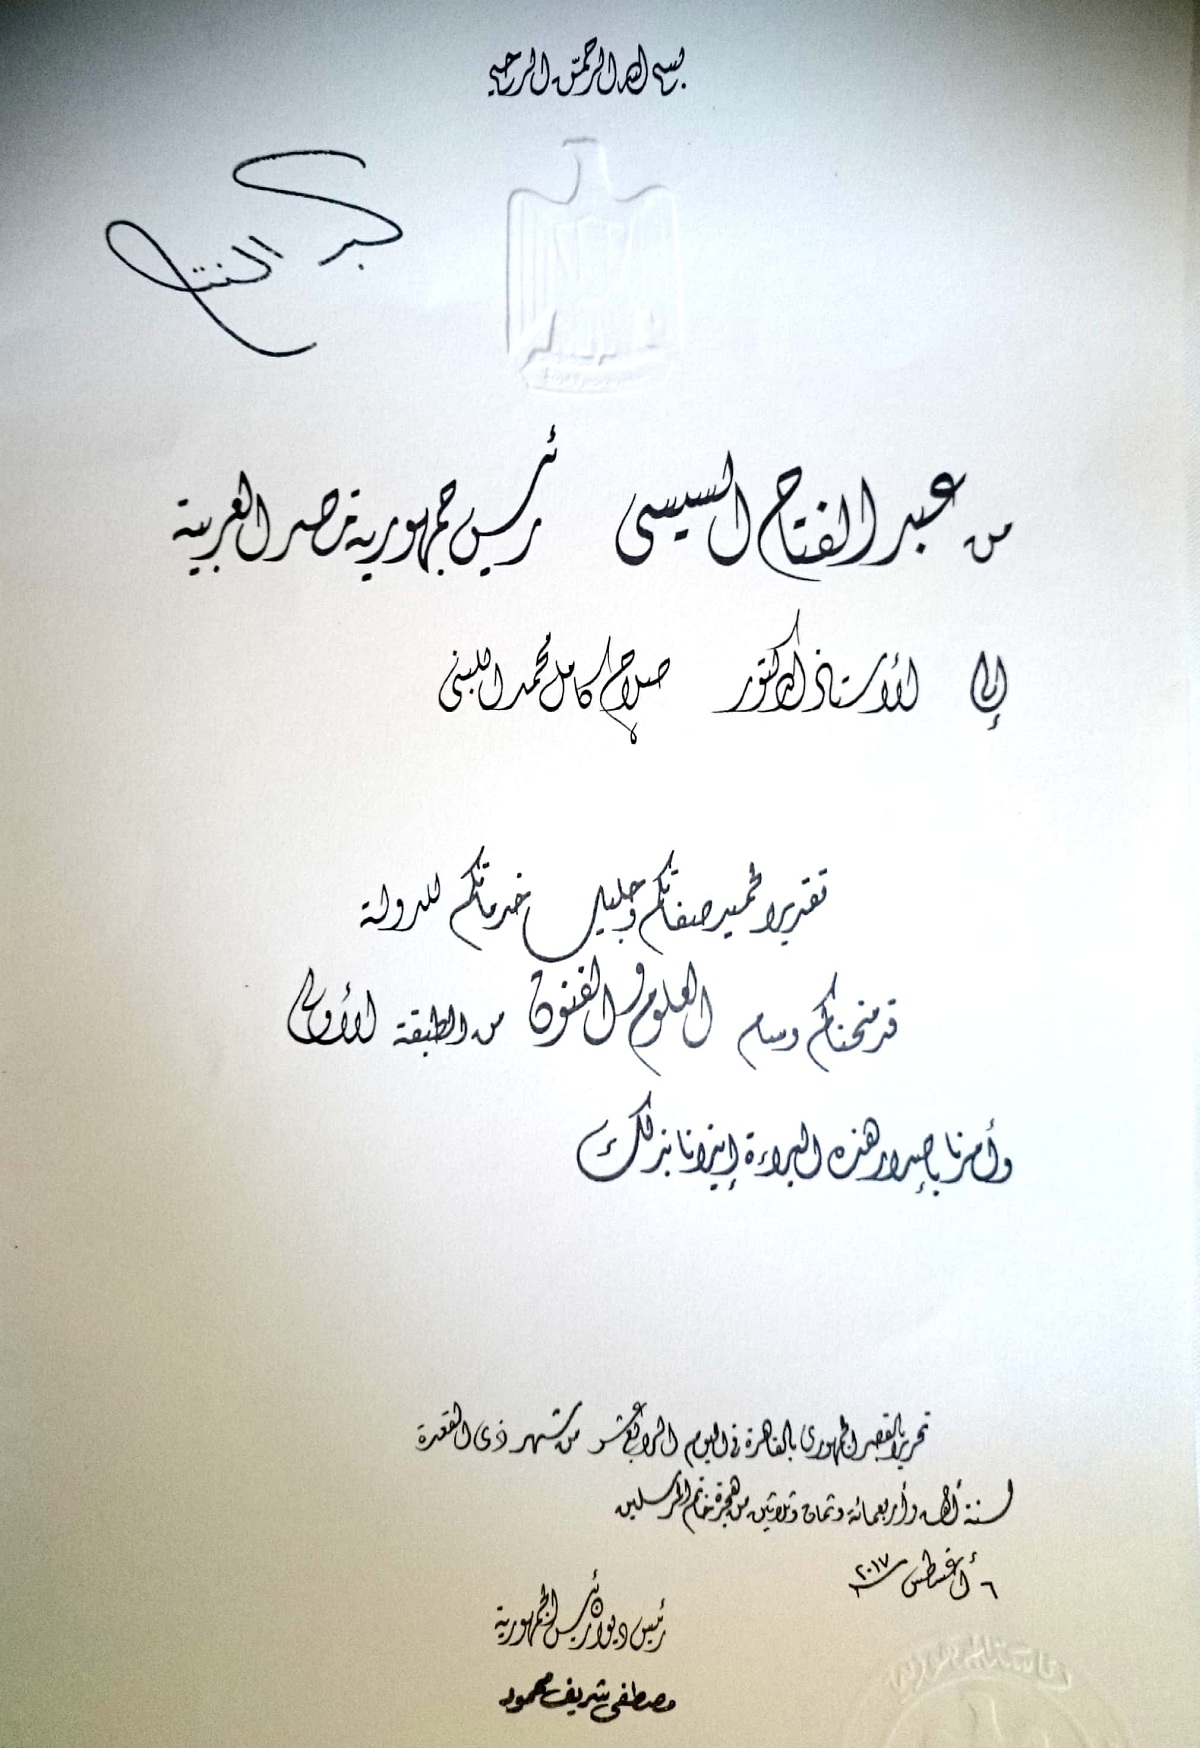 بسم الله الرحمن الرحيم
عبد الفتاح
من عبد الفتاح السيسى رئيس جمهورية مصر العربية
إلى الأستاذ الدكتور صلاح كامل محمد اللبنى
تقديرا لحميد صفاتكم وجليل خدماتكم للدولة
قد منحناكم وسام العلوم والفنون من الطبقة الأولى
وأمرنا بإصدار هذه البراءة إيذانا بذلك
تحريرا بالقصر الجمهورى بالقاهرة فى اليوم الرابع عشر من شهر ذى القعدة
لسنة ألف وأربعمائة وثمان وثلاثين من هجرة خاتم المرسلين
٦ أغسطس سنة ٢٠١٧
رئيس ديوان رئيس الجمهورية
مصطفى شريف محمود